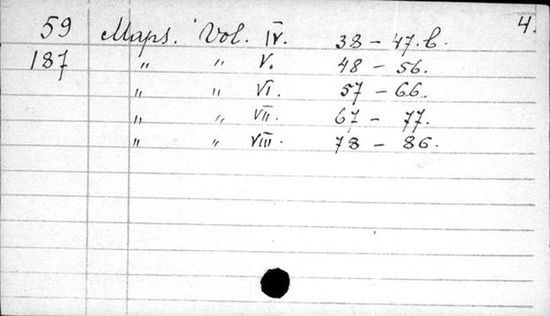 4.
59 Maps. Vol. IV. 38 – 47.b.
187 " " V. 48 – 56.
" " VI. 57 – 66.
" " VII. 67 – 77.
" " VIII. 78 – 86.